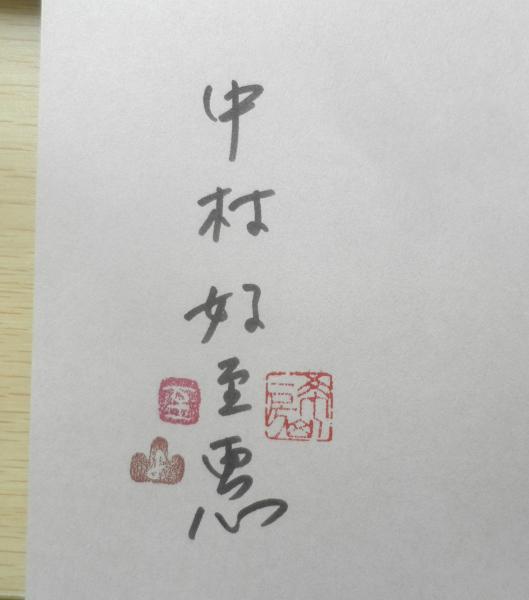 中村好至恵